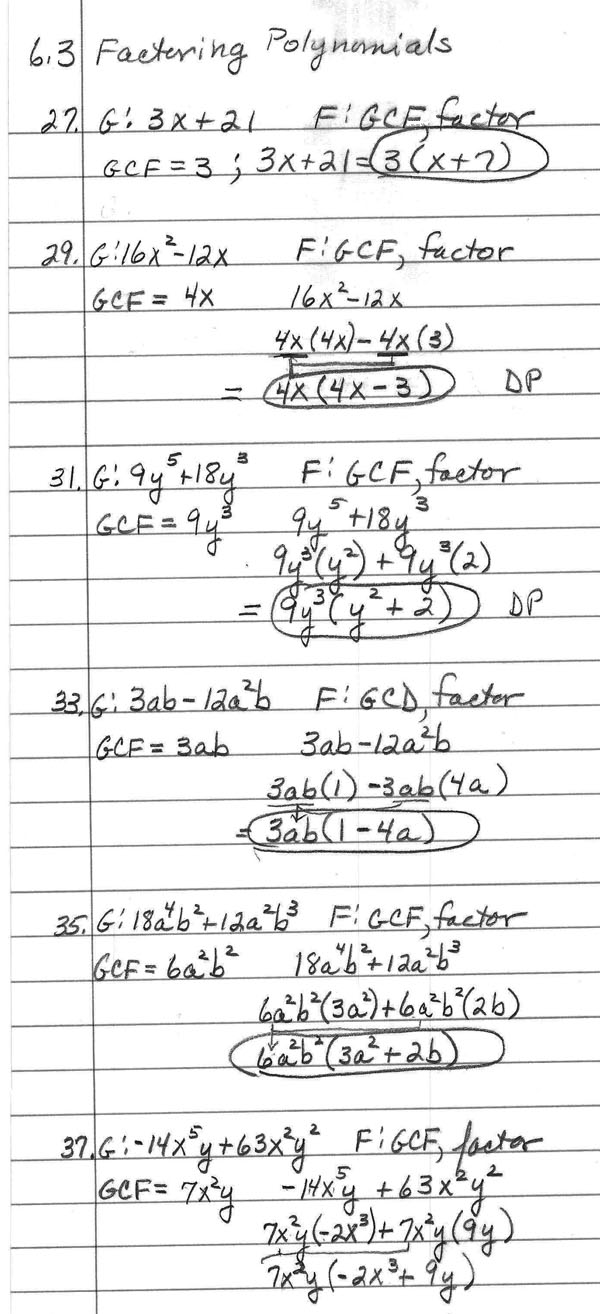 6.3 Factoring Polynomials
27. G: 3x+21 F: GCF, factor
GCF = 3 ; 3x+21 = 3(x+7)
29. G: 16x²-12x F: GCF, factor
GCF = 4x 16x²-12x
4x(4x) - 4x(3)
= 4x(4x-3) DP
31. G: 9y⁵+18y³ F: GCF, factor
GCF = 9y³ 9y⁵+18y³
9y³(y²) + 9y³(2)
= 9y³(y²+2) DP
33. G: 3ab-12a²b F: GCD, factor
GCF = 3ab 3ab-12a²b
3ab(1) - 3ab(4a)
= 3ab(1-4a)
35. G: 18a⁴b²+12a²b³ F: GCF, factor
GCF = 6a²b² 18a⁴b²+12a²b³
6a²b²(3a²)+6a²b²(2b)
6a²b²(3a²+2b)
37. G: -14x⁵y+63x²y² F: GCF, factor
GCF = 7x²y -14x⁵y +63x²y²
7x²y(-2x³)+7x²y(9y)
7x²y(-2x³+9y)